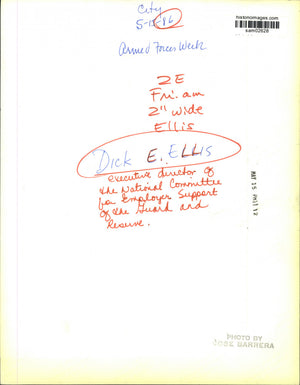 City
5-15-86
historicimages.com
sam02628
Armed Forces Week
2E
Fri. am
2" wide
Ellis
Dick E. ELLIS
executive director of
the National Committee
for Employer Support
of the Guard and
Reserve.
PHOTO BY
JOSE BARRERA